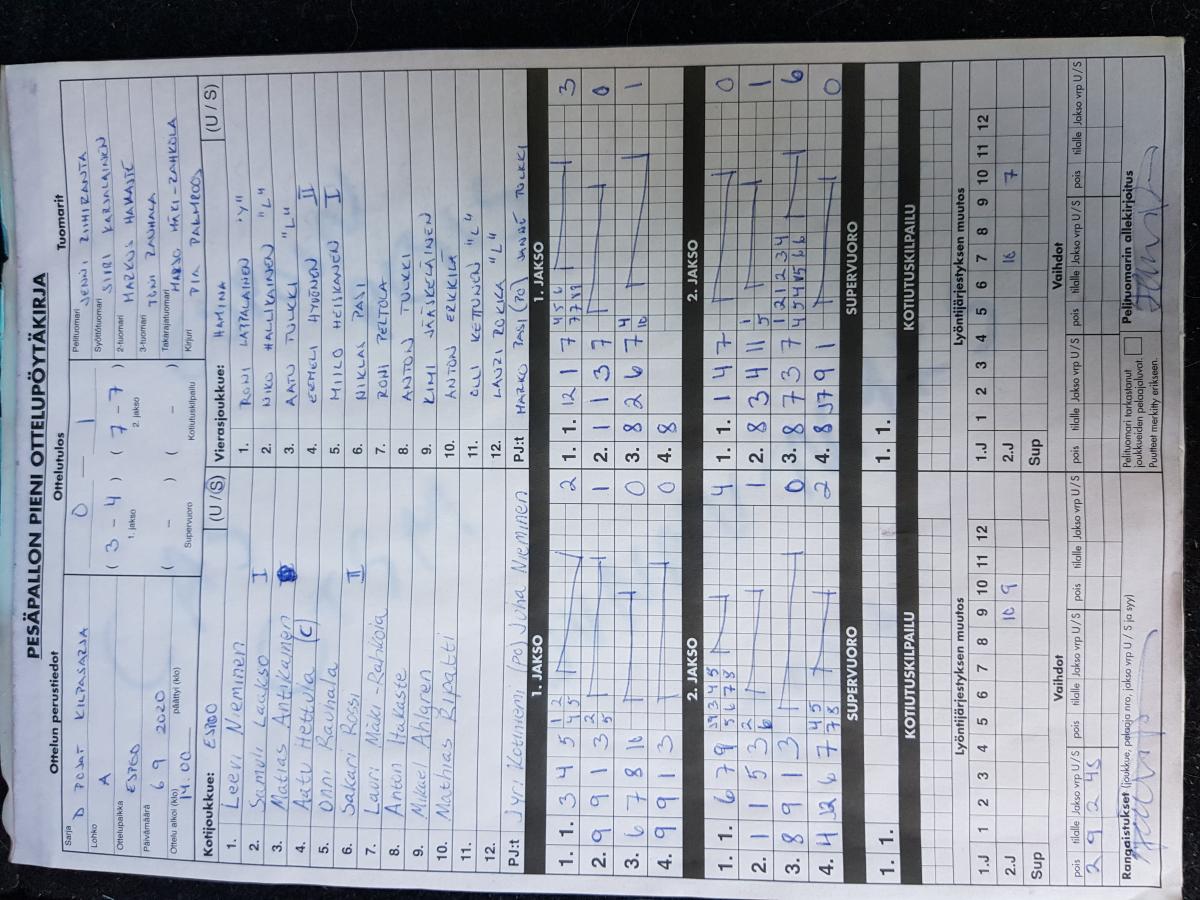 PESÄPALLON PIENI OTTELUPÖYTÄKIRJA
Ottelun perustiedot
Ottelutulos
Tuomarit
Sarja D POJAT KILPASARJA
Lohko A
Ottelupaikka ESPOO
Päivämäärä 6 9 2020
Ottelu alkoi (klo) 14.00 päättyi (klo)
0 — 1
( 3 – 4 ) ( 7 – 7 )
1. jakso 2. jakso
( – ) ( – )
Supervuoro Kotiutuskilpailu
Pelituomari JENNI
Syöttötuomari SIIRI KARJALAINEN
2-tuomari MARKUS HAKASTE
3-tuomari TONI RAUHALA
Takarajatuomari MARJO MÄKI-RAHKOLA
Kirjuri PIA PALMROOS
Kotijoukkue: ESPOO (U / S)
1. Leevi Nieminen
2. Samuli Laakso I
3. Matias Antikainen
4. Aatu Hettula (C)
5. Onni Rauhala
6. Sakari Rossi II
7. Lauri Mäki-Rahkola
8. Anton Hakaste
9. Mikael Ahdren
10. Mathias Ripatti
11.
12.
PJ:t Jyri Kotiniemi (PO) Juha Nieminen
Vierasjoukkue: HAMINA (U / S)
1. RONI LAPPALAINEN "V"
2. NIKO HALLIKAINEN "L"
3. AATU TULKKI "L"
4. EEMELI HYVÖNEN II
5. MIILO HEISKANEN I
6. NIKLAS PASI
7. ROHI PELTOLA
8. ANTON TULKKI
9. KIMI JÄÄSKELÄINEN
10. ANTON ERKKILÄ
11. OLLI KETTUNEN "L"
12. LAURI ROKKA "L"
PJ:t MARKO PASI (PO) JANNE TULKKI
1. JAKSO
1. 1. 3 4 5 2
2. 9 9 1 3 1
3. 6 7 8 10 0
4. 9 9 1 3 0
1. JAKSO
1. 1. 12 1 7 3
2. 1 1 3 7 0
3. 8 2 6 7 1
4. 8
2. JAKSO
1. 1. 6 7 9 4
2. 1 1 5 3 1
3. 8 9 1 3 0
4. 11 12 6 7 2
2. JAKSO
1. 1. 1 4 7 0
2. 8 3 4 11 1
3. 8 7 3 7 6
4. 8 9 1 0
SUPERVUORO
1. 1.
SUPERVUORO
1. 1.
KOTIUTUSKILPAILU
KOTIUTUSKILPAILU
Lyöntijärjestyksen muutos
1.J 1 2 3 4 5 6 7 8 9 10 11 12
2.J 10 9
Sup
Lyöntijärjestyksen muutos
1.J 1 2 3 4 5 6 7 8 9 10 11 12
2.J 7
Sup
Vaihdot
pois tilalle Jakso vrp U/S pois tilalle Jakso vrp U/S pois tilalle Jakso vrp U/S
2 9 2 4S
Vaihdot
pois tilalle Jakso vrp U/S pois tilalle Jakso vrp U/S pois tilalle Jakso vrp U/S
Rangaistukset (joukkue, pelaaja nro, jakso vrp U / S ja syy)
Pelituomari tarkastanut
joukkueiden pelaajaluvat.
Puutteet merkitty erikseen.
Pelituomarin allekirjoitus